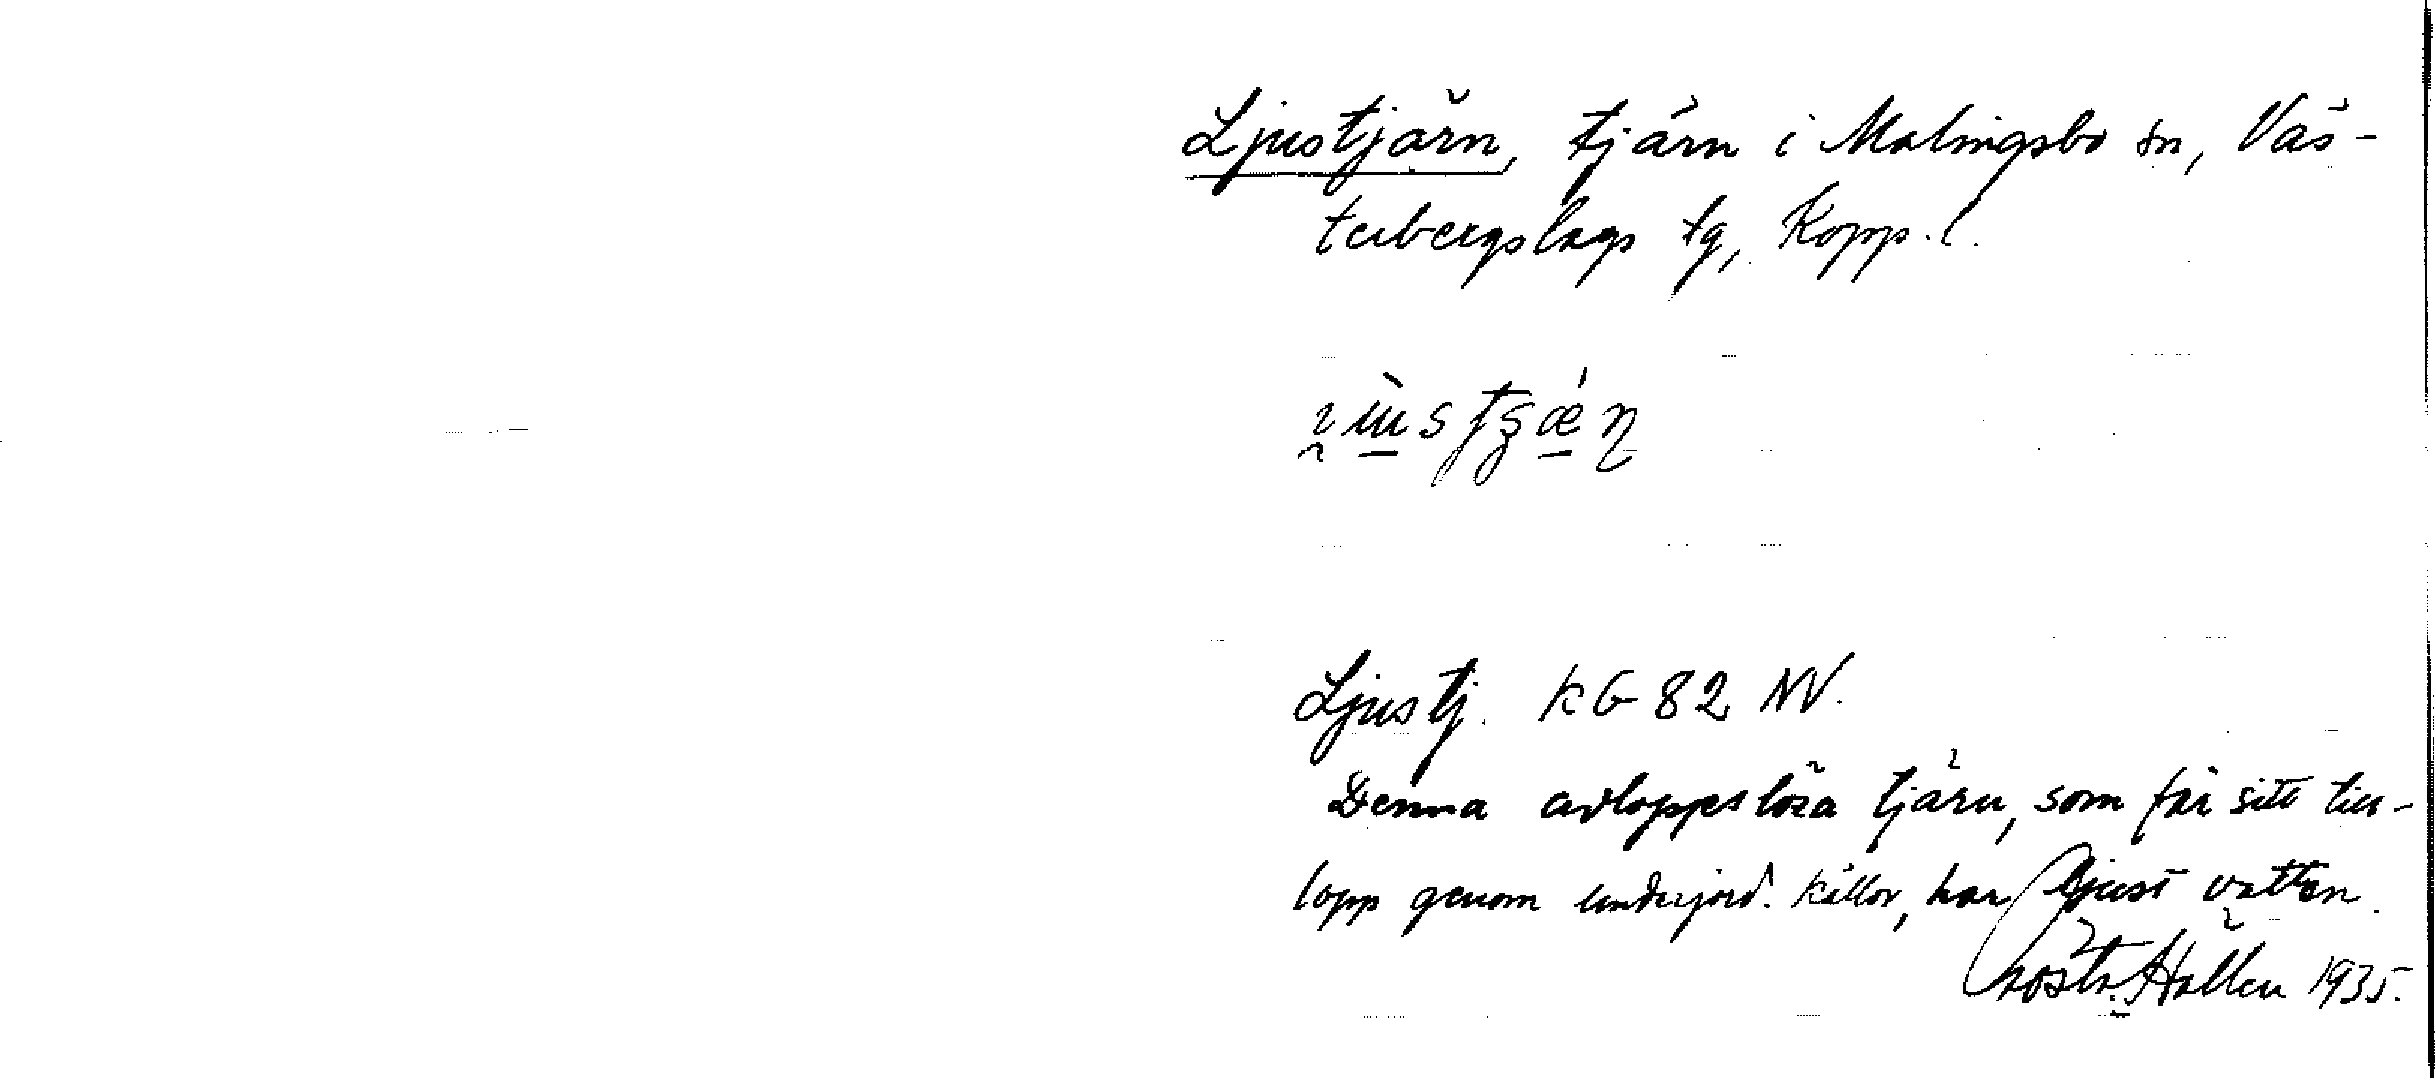 Ljustjärn, tjärn i Malingsbo sn, Väs-
terbergslags tg, Kopp. l.
Ljustj. KG 82 NV.
Denna avloppslösa tjärn, som får sitt till-
lopp genom underjord. källor, har ljust vatten.
Hållen 1935.